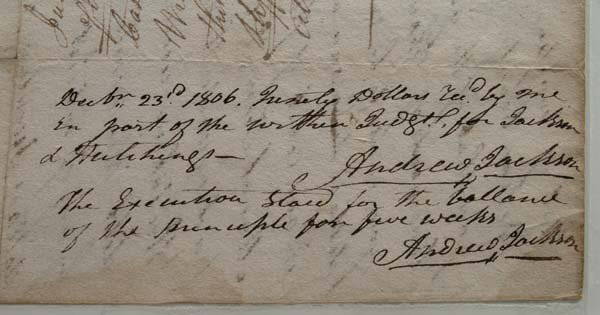 Decbr. 23d 1806. Ninety Dollars Recd by me
in part of the within Judgt. for Jackson
& Hutchings—
Andrew Jackson
The Execution Staed for the ballance
of the Principle for five weeks
Andrew Jackson